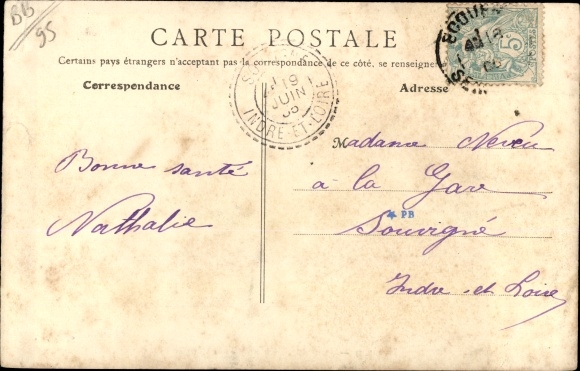 BB
95
CARTE POSTALE
Certains pays étrangers n'acceptant pas la correspondance de ce côté, se renseigner
Correspondance
Adresse
19
JUIN
INDRE-ET-LOIRE
ECOUEN
5
POSTES
Bonne santé
Nathalie
Madame Neveu
a la Gare
PB
Souvigné
Indre et Loire